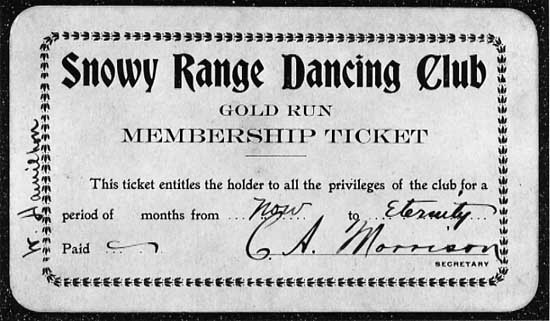 Snowy Range Dancing Club
GOLD RUN
MEMBERSHIP TICKET
This ticket entitles the holder to all the privileges of the club, for a
period of ... months from ... Now ... to ... Eternity ...
Paid ...
C. A. Morrison
SECRETARY
Hamilton